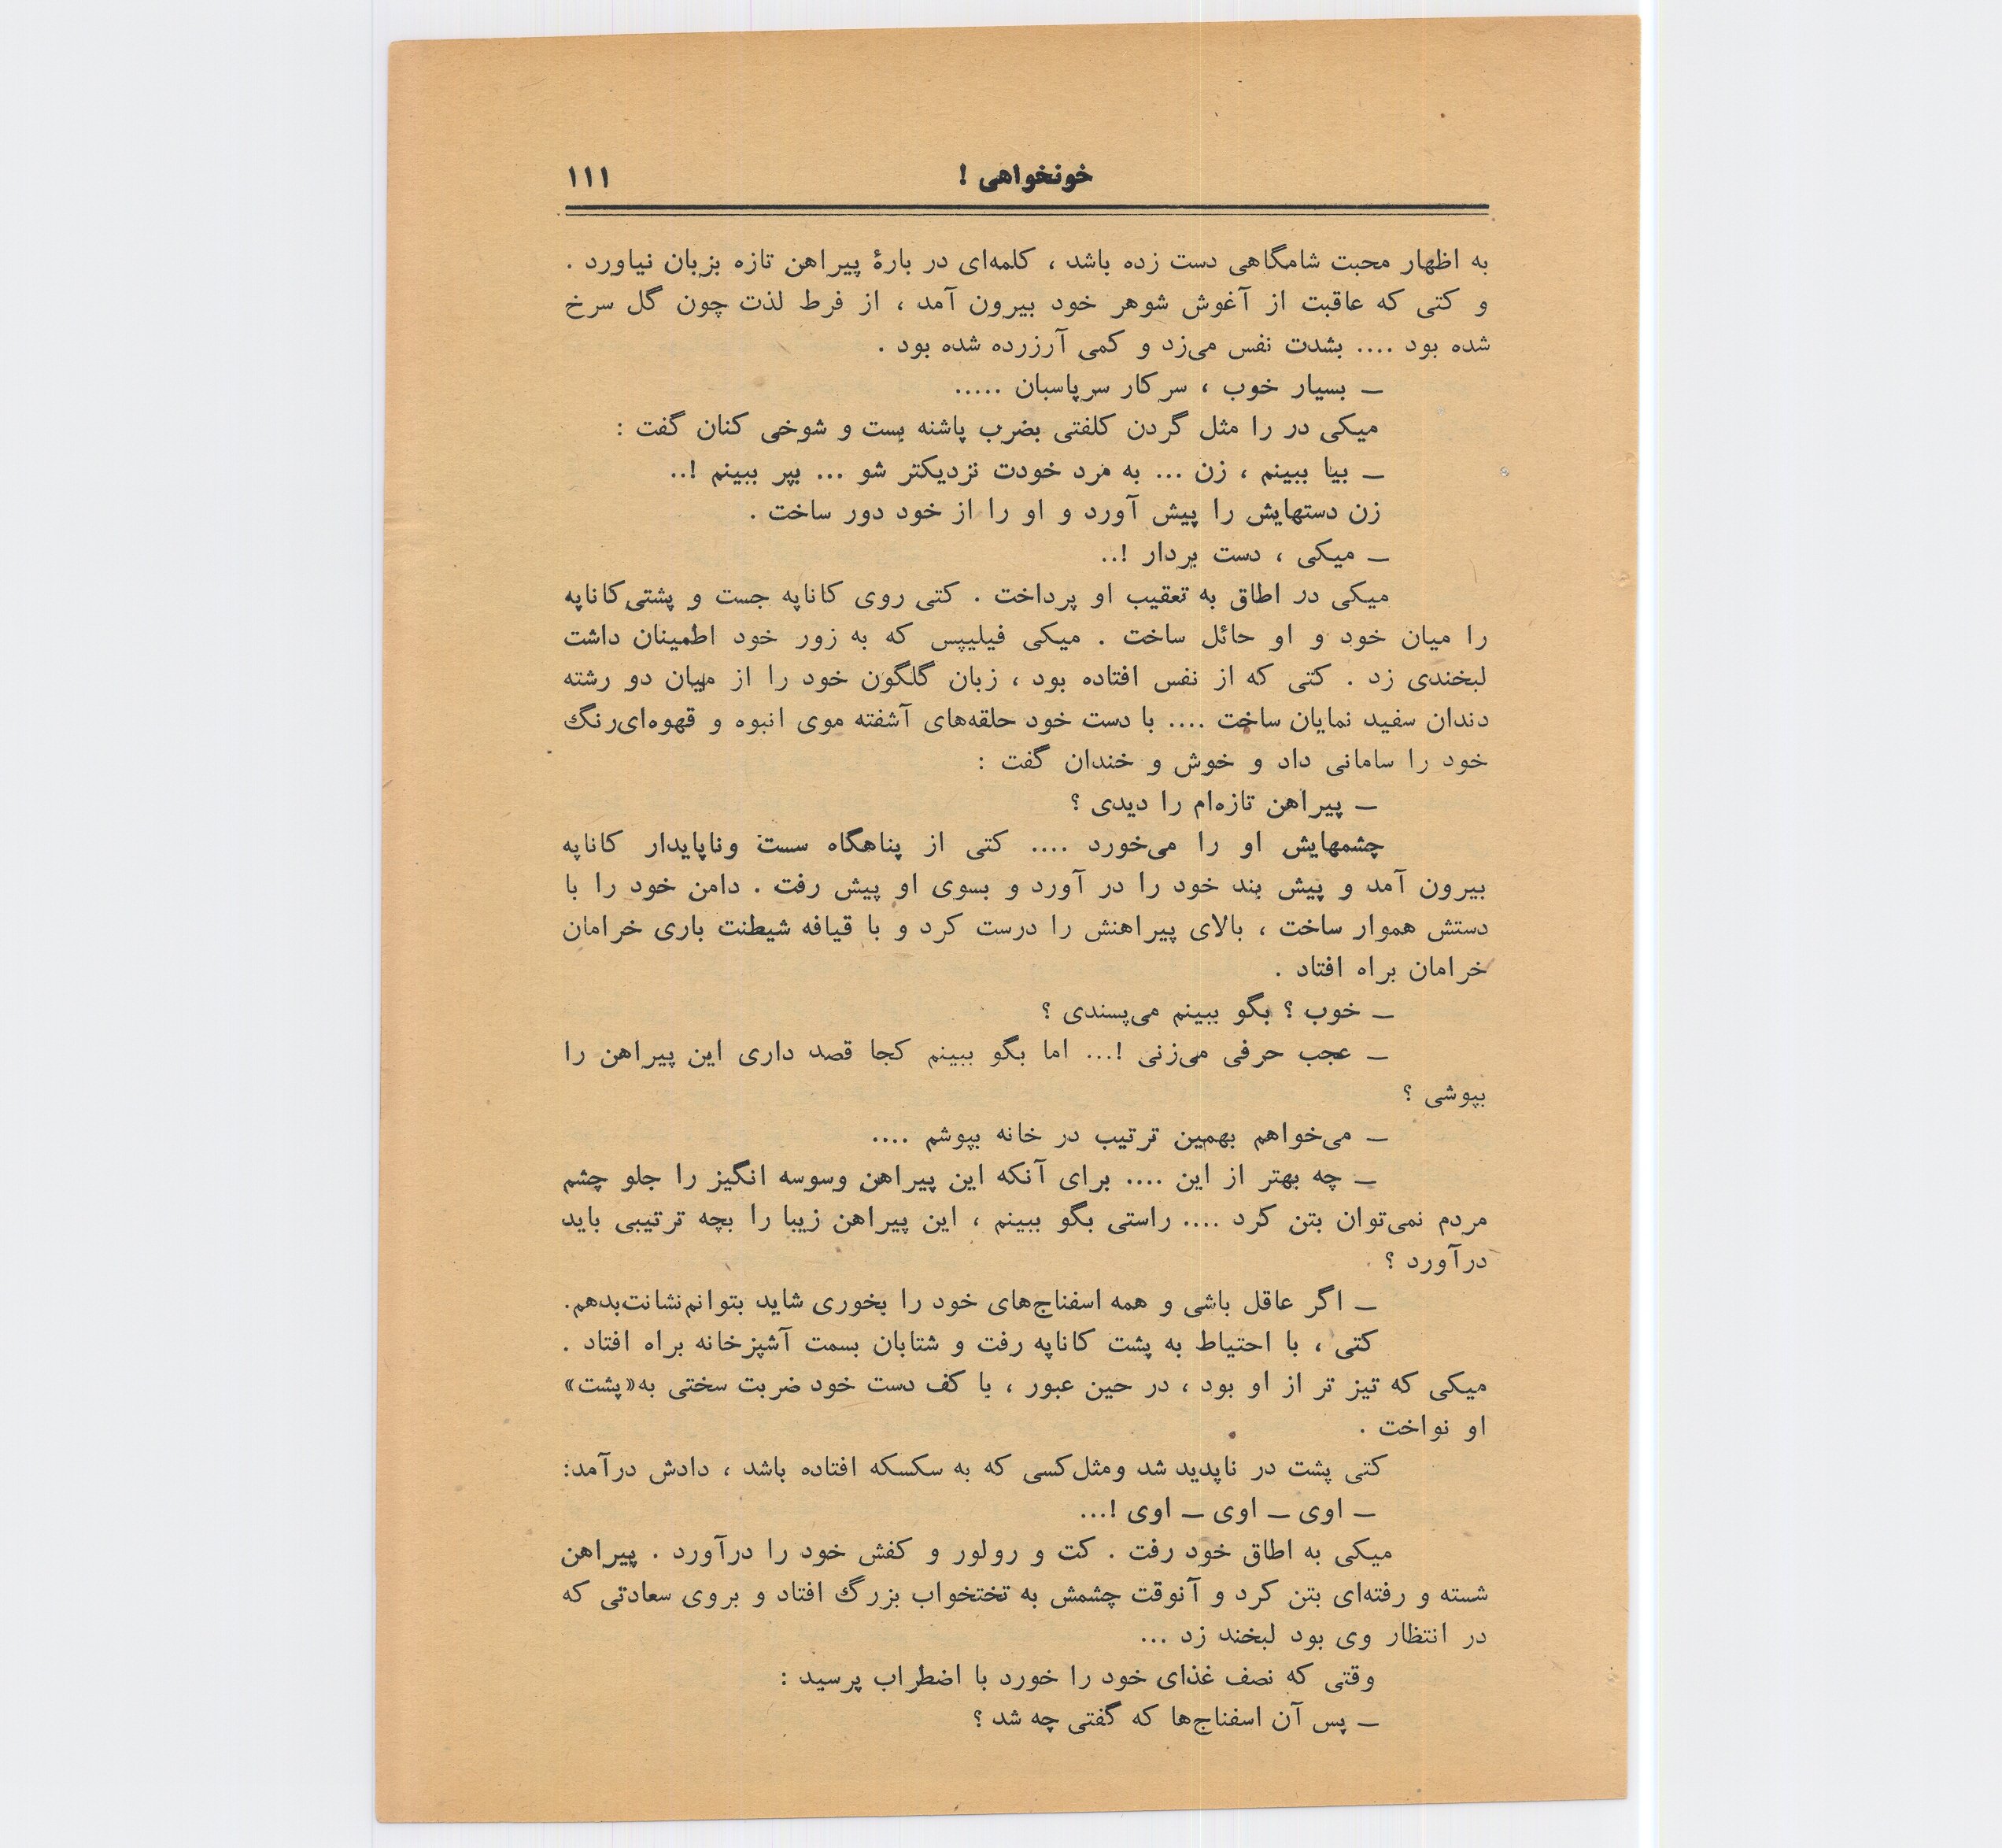 خونخواهی ! ۱۱۱
به اظهار محبت شامگاهی دست زده باشد ، کلمه‌ای در بارهٔ پیراهن تازه بزبان نیاورد .
و کتی که عاقبت از آغوش شوهر خود بیرون آمد ، از فرط لذت چون گل سرخ
شده بود .... بشدت نفس می‌زد و کمی آرزرده شده بود .
ــ بسیار خوب ، سرکار سرپاسبان .....
میکی در را مثل گردن کلفتی بضرب پاشنه بست و شوخی کنان گفت :
ــ بیا ببینم ، زن ... به مرد خودت نزدیکتر شو ... بپر ببینم !..
زن دستهایش را پیش آورد و او را از خود دور ساخت .
ــ میکی ، دست بردار !..
میکی در اطاق به تعقیب او پرداخت . کتی روی کاناپه جست و پشتی کاناپه
را میان خود و او حائل ساخت . میکی فیلیپس که به زور خود اطمینان داشت
لبخندی زد . کتی که از نفس افتاده بود ، زبان گلگون خود را از میان دو رشته
دندان سفید نمایان ساخت .... با دست خود حلقه‌های آشفته موی انبوه و قهوه‌ای‌رنگ
خود را سامانی داد و خوش و خندان گفت :
ــ پیراهن تازه‌ام را دیدی ؟
چشمهایش او را می‌خورد .... کتی از پناهگاه سست وناپایدار کاناپه
بیرون آمد و پیش بند خود را در آورد و بسوی او پیش رفت . دامن خود را با
دستش هموار ساخت ، بالای پیراهنش را درست کرد و با قیافه شیطنت باری خرامان
خرامان براه افتاد .
ــ خوب ؟ بگو ببینم می‌پسندی ؟
ــ عجب حرفی می‌زنی !... اما بگو ببینم کجا قصد داری این پیراهن را
بپوشی ؟
ــ می‌خواهم بهمین ترتیب در خانه بپوشم ....
ــ چه بهتر از این .... برای آنکه این پیراهن وسوسه انگیز را جلو چشم
مردم نمی‌توان بتن کرد .... راستی بگو ببینم ، این پیراهن زیبا را بچه ترتیبی باید
درآورد ؟
ــ اگر عاقل باشی و همه اسفناج‌های خود را بخوری شاید بتوانم‌نشانت‌بدهم.
کتی ، با احتیاط به پشت کاناپه رفت و شتابان بسمت آشپزخانه براه افتاد .
میکی که تیز تر از او بود ، در حین عبور ، با کف دست خود ضربت سختی به«پشت»
او نواخت .
کتی پشت در ناپدید شد ومثل‌کسی که به سکسکه افتاده باشد ، دادش درآمد:
ــ اوی ــ اوی ــ اوی !...
میکی به اطاق خود رفت . کت و رولور و کفش خود را درآورد . پیراهن
شسته و رفته‌ای بتن کرد و آنوقت چشمش به تختخواب بزرگ افتاد و بروی سعادتی که
در انتظار وی بود لبخند زد ...
وقتی که نصف غذای خود را خورد با اضطراب پرسید :
ــ پس آن اسفناج‌ها که گفتی چه شد ؟